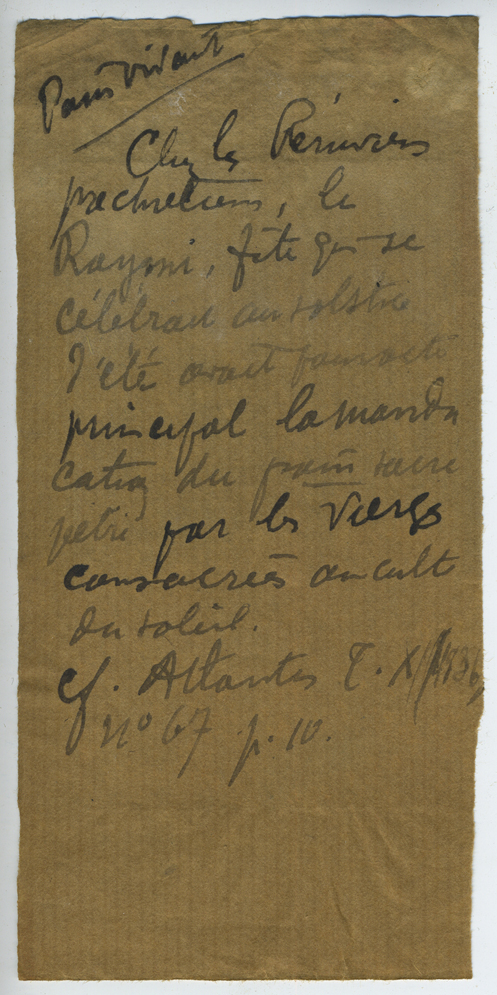 Pain vivant
Chez les Péruviens
préchrétiens, le
Raymi, fête qui se
célébrait au solstice
d'été avait pour acte
principal la mandu
cation du pain sacré
pétri par les Vierges
consacrées au culte
du soleil.
cf. Atlantis T. X (1936)
No 67 p. 10.